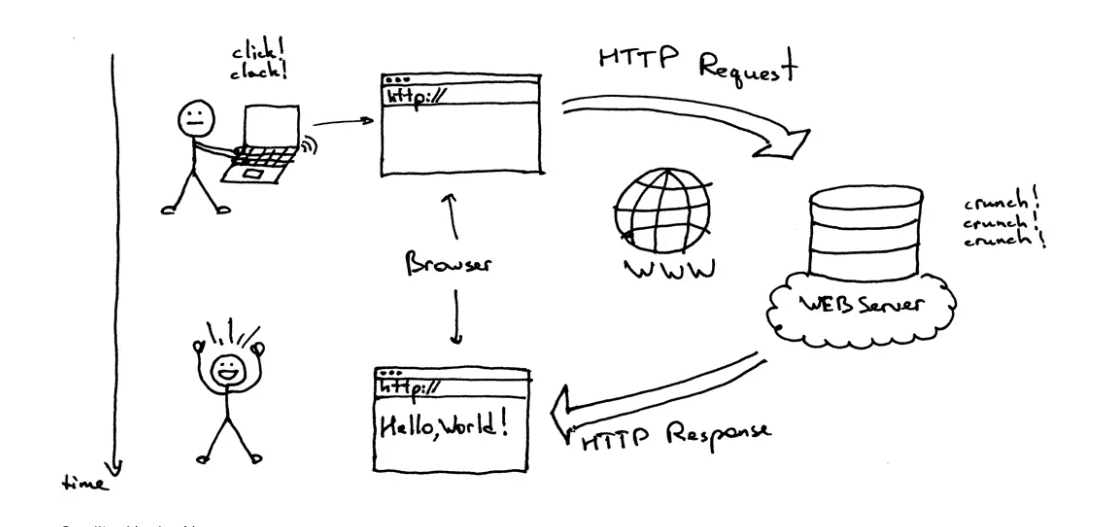 click!
clack!
http://
HTTP Request
crunch!
crunch!
crunch!
WWW
Browser
WEB Server
http://
Hello, World!
HTTP Response
time